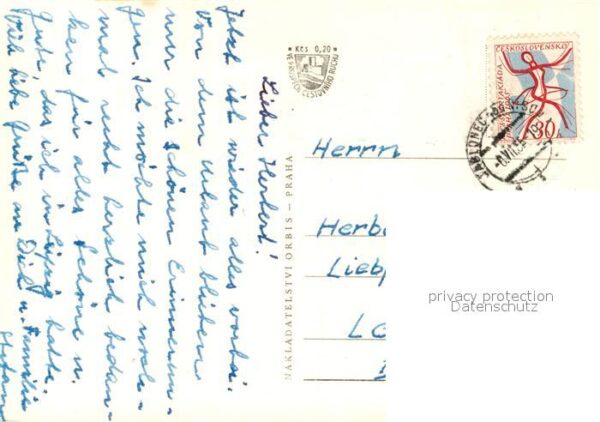 Lieber Herbert!
Jetzt ist wieder alles vorbei.
Von dem Urlaub bleiben
nur die Schönen Erinnerun-
gen. Ich möchte mich noch-
mals recht herzlich bedan-
ken für alles Schöne u.
Gute, das ich in Leipzig hatte.
liebe Grüße an Dich u. Familie
Stefan
Kčs 0,20
CESTOVNÍHO RUCHU
NAKLADATELSTVÍ ORBIS — PRAHA
ČESKOSLOVENSKO
30
JABLONEC
Herrn
Herb
Lieb
privacy protection
Datenschutz